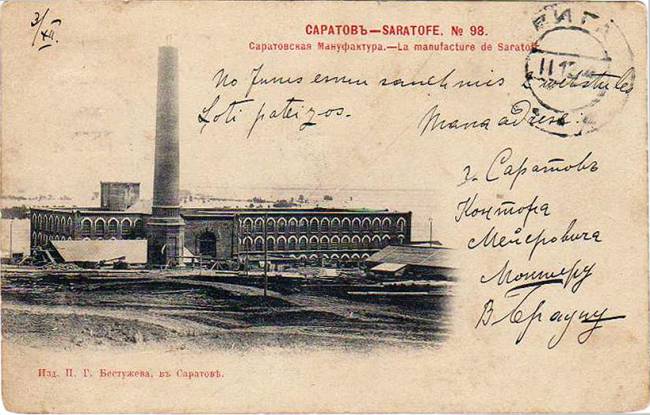 3/XII.
САРАТОВЪ—SARATOFF. № 98.
Саратовская Мануфактура.—La manufacture de Saratoff
РИГА
No Jums esmu saņēmis
Ļoti pateizos.
Mana adrese:
г. Саратовъ
Контора
Мейеровича
Монтеру
В. Брауну
Изд. П. Г. Бестужева, въ Саратовѣ.